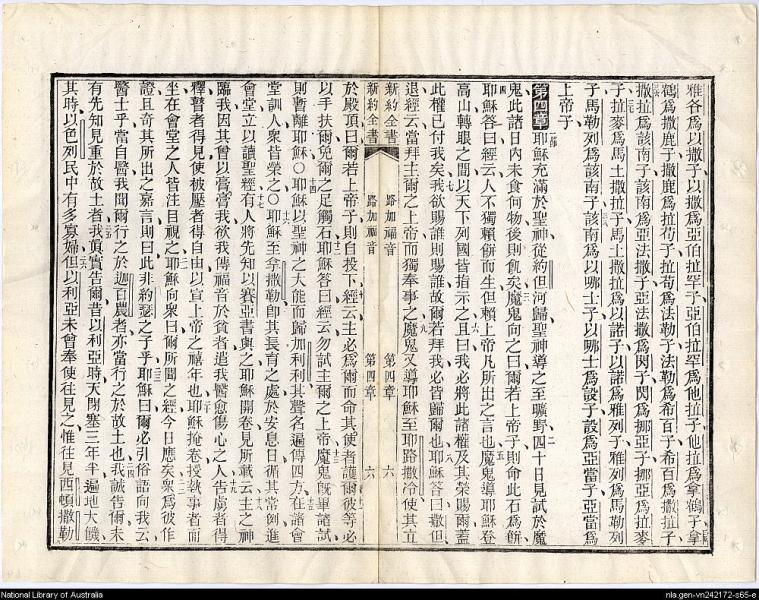 雅各爲以撒子以撒爲亞伯拉罕子亞伯拉罕爲他拉子他拉爲拿鶴子拿
鶴爲撒鹿子撒鹿爲拉苟子拉苟爲法勒子法勒爲希百子希百爲撒拉子
撒拉爲該南子該南爲亞法撒子亞法撒爲閃子閃爲挪亞子挪亞爲拉麥
子拉麥爲馬土撒拉子馬土撒拉爲以諾子以諾爲雅列子雅列爲馬勒列
子馬勒列爲該南子該南爲以哪士子以哪士爲設子設爲亞當子亞當爲
上帝子
第四章耶穌充滿於聖神從約但河歸聖神導之至曠野四十日見試於魔
鬼此諸日內未食何物後則飢矣魔鬼向之曰爾若上帝子則命此石爲餅
耶穌答曰經云人不獨賴餅而生但賴上帝凡所出之言也魔鬼導耶穌登
高山轉眼之間以天下列國皆指示之且曰我必將此諸權及其榮賜爾蓋
此權已付我矣我欲賜誰則賜誰故爾若拜我必皆歸爾也耶穌答曰撒但
退經云當拜主爾之上帝而獨奉事之魔鬼又導耶穌至耶路撒冷使其立
新約全書 路加福音 第四章 六
新約全書 路加福音 第四章 六
於殿頂曰爾若上帝子則自投下經云主必爲爾而命其使者護爾彼等必
以手扶爾免爾之足觸石耶穌答曰經云勿試主爾之上帝魔鬼旣畢諸試
則暫離耶穌○耶穌以聖神之大能而歸加利利其聲名遍傳四方在諸會
堂訓人衆皆榮之○耶穌至拿撒勒卽其長育之處於安息日循其常例進
會堂立以讀聖經有人將先知以賽亞書與之耶穌開卷見所載云主之神
臨我因其曾以膏膏我欲我傳福音於貧者遣我醫愈傷心之人告虜者得
釋瞽者得見使被壓者得自由以宣上帝之禧年也耶穌掩卷授執事者而
坐在會堂之人皆注目視之耶穌向衆曰爾所聞之經今日應矣衆爲彼作
證且奇其所出之嘉言則曰此非約瑟之子乎耶穌曰爾必引俗語向我云
醫士乎當自醫我聞爾行之於迦百農者亦當行之於故土也我誠告爾未
有先知見重於故土者我眞實告爾昔以利亞時天閉塞三年半遍地大饑
其時以色列民中有多寡婦但以利亞未曾奉使往見之惟往見西頓撒勒
National Library of Australia
nla.gen-vn242172-s65-e